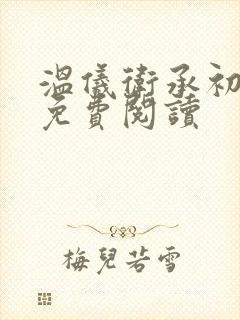 溫儀衛承初
免費閱讀
梅兒若雪